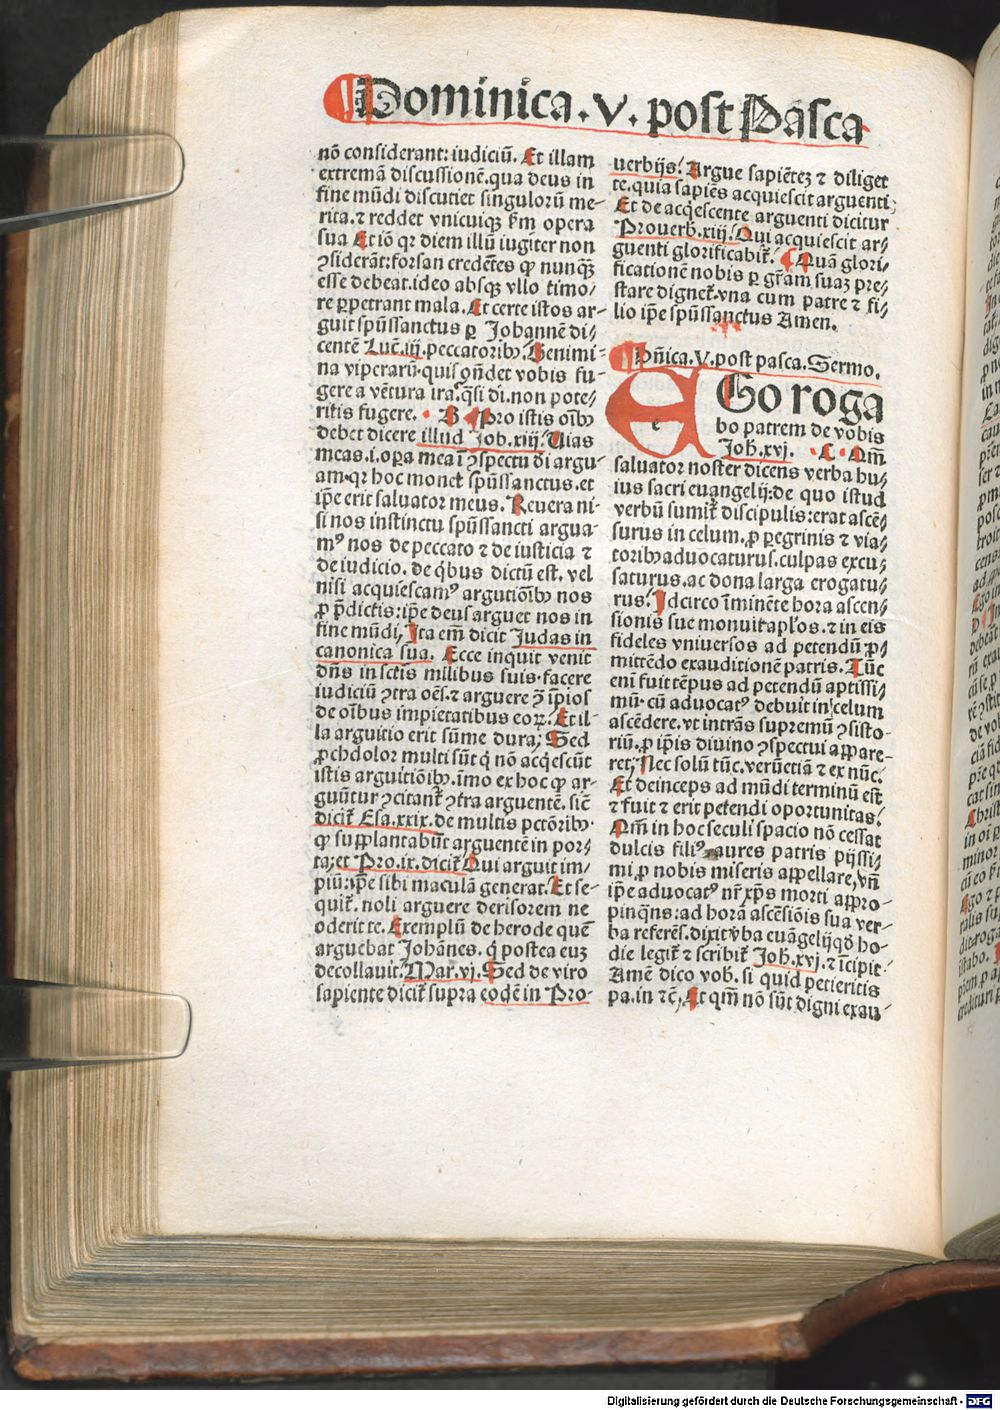 Dominica.V.post Pasca
nō considerant: iudiciū. Et illam
extremā discussionē.qua deus in
fine mūdi discutiet singuloꝝ me-
rita.⁊ reddet vnicuiqꝫ ẜm opera
sua Et iō qꝛ diem illū iugiter non
ꝯsiderāt:forsan credētes ꝙ nunqꝫ̄
esse debeat.ideo absqꝫ vllo timo/
re ꝑpetrant mala. Et certe istos ar-
guit spūssanctus ꝑ Johannē di/
centē Luc̄.iij.peccatoribꝰ. Genimi-
na viperarū.quis oñdet vobis fu-
gere a vētura ira.qͣsi di.non pote/
ritis fugere. B Pro istis oībꝰ
debet dicere illud Job.xiij.Uias
meas.i.oꝑa mea ī ꝯspectu dī argu-
am.qꝛ hoc monet spūssanctus.et
ip̄e erit saluator meus. Reuera ni-
si nos instinctu spūssancti argua-
mꝰ nos de peccato ⁊ de iusticia ⁊
de iudicio. de qͥbus dictū est. vel
nisi acquiescamꝰ argutiōibꝰ nos
ꝓ p̄dictis:ip̄e deus arguet nos in
fine mūdi, Ita em̄ dicit Judas in
canonica sua. Ecce inquit venit
dn̄s in sctīs milibus suis.facere
iudiciū ꝯtra oēs.⁊ arguere oēs īpios
de oībus impietatibus eoꝝ. Et il-
la arguitio erit sūme dura, Sed
ꝓchdolor multi sūt qͥ nō acqescūt
istis arguitiōibꝰ.īmo ex hoc ꝙ ar-
guūtur ꝯcitant̄ ꝯtra arguentē. sic̄
dicit̄ Esa.xxix.de multis pctōribꝰ.
ꝙ supplantabūt arguentē in por-
ta,et Pro.ix.dicit̄ Qui arguit im-
piū:ip̄e sibi maculā generat. Et se-
quit̄. noli arguere derisorem ne
oderit te. Exemplū de herode quē
arguebat Johānes. qͥ postea euꝫ
decollauit. Mar.vj. Sed de viro
sapiente dicit̄ supra eodē in Pro-
uerbijs. Argue sapiētē ⁊ diliget
te.quia sapiēs acquiescit arguenti,
Et de acqͥescente arguenti dicitur
Prouerb.xiij. Qui acquiescit ar/
guenti glorificabit̄. Quā glori/
ficationē nobis ꝑ gr̄am suaꝫ pre/
stare dignet̄.vna cum patre ⁊ fi/
lio ip̄e spūssanctus Amen.
Dn̄ica.V.post pasca.Sermo.
e Go roga
bo patrem de vobis
Joh̄.xvj. Qm̄
saluator noster dicens verba hu/
ius sacri euangelij:de quo istud
verbū sumit̄ discipulis:erat ascē/
surus in celum.ꝓ ꝑegrinis ⁊ via/
toribꝰ aduocaturus.culpas excu/
saturus.ac dona larga erogatu/
rus. Idcirco īminēte hora ascen/
sionis sue monuit apl̄os.⁊ in eis
fideles vniuersos ad petendū ꝓ/
mittēdo exauditionē patris. Tūc
enī fuit tēpus ad petendū aptissi/
mū.cū aduocatꝰ debuit in celum
ascēdere.vt intrās supremū ꝯsisto/
riū.ꝓ ip̄is diuino ꝯspectui appare-
ret, Nec solū tūc.verūetiā ⁊ ex nūc.
Et deinceps ad mūdi terminū est
⁊ fuit ⁊ erit petendi oportunitas.
Qm̄ in hoc seculi spacio nō cessat
dulcis filiꝰ aures patris pijssi/
mi ꝓ nobis miseris appellare, vn̄
ip̄e aduocatꝰ nr̄ xp̄s morti appro/
pinqns:ad horā ascēsiōis sua ver-
ba referēs. dixit v̄ba euāgelij qd̄ ho-
die legit̄ ⁊ scribit̄ Joh̄.xvj.⁊ īcipit.
Amē dico vob. si quid petieritis
pa.in ⁊c̄, Et qm̄ nō sūt digni exau-
Digitalisierung gefördert durch die Deutsche Forschungsgemeinschaft - DFG